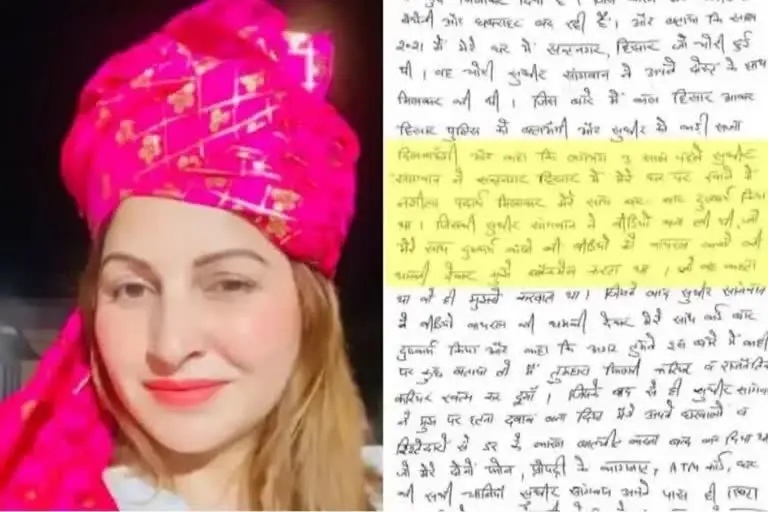 बेचैनी और घबराहट बढ़ रही है। और बताया कि साल
2021 में मेरे घर में संतनगर, हिसार जो चोरी हुई
थी। वह चोरी सुधीर सांगवान ने अपने दोस्त के साथ
मिलकर की थी। जिस बारे में कल हिसार आकर
हिसार पुलिस में बताऊंगी और सुधीर को कड़ी सजा
दिलवाऊंगी और कहा कि लगभग 3 साल पहले सुधीर
सांगवान ने संतनगर हिसार में मेरे घर पर खाने में
नशीला पदार्थ मिलाकर मेरे साथ दुष्कर्म किया
था। जिसकी सुधीर सांगवान ने वीडियो बना ली थी, जो
मेरे साथ दुष्कर्म करने की वीडियो को वायरल करने की
धमकी देकर मुझे ब्लैकमेल करता था। जो वह कहता
था वो ही मुझसे करवाता था। जिसके बाद सुधीर सांगवान
ने वीडियो वायरल की धमकी देकर मेरे साथ कई बार
दुष्कर्म किया और कहा कि अगर तुमने इस बारे में कहीं
पर कुछ बताया तो मैं तुम्हारा फिल्मी करियर व राजनैतिक
करियर खत्म कर दूंगा। जिसके बाद से ही सुधीर सांगवान
ने मुझ पर इतना दबाव बना दिया मैंने अपने घरवालों व
रिश्तेदारों से डर के कारण बातचीत करना बन्द कर दिया था
जो मेरे दोनों फोन, प्रॉपर्टी के कागजात, ATM कार्ड, घर
की सभी चाबियां सुधीर सांगवान अपने पास ही रखता